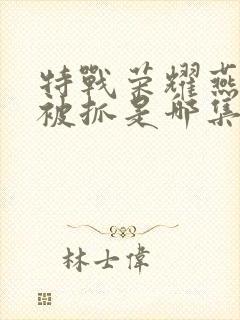 特戰荣耀燕
被抓是哪集
林士偉